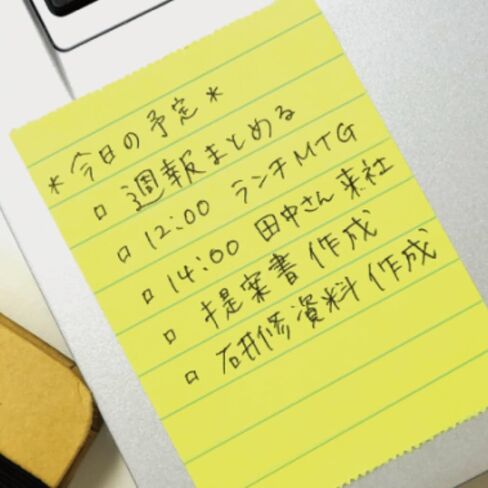 *今日の予定*
□ 週報まとめる
□ 12:00 ランチMTG
□ 14:00 田中さん来社
□ 提案書作成
□ 研修資料作成